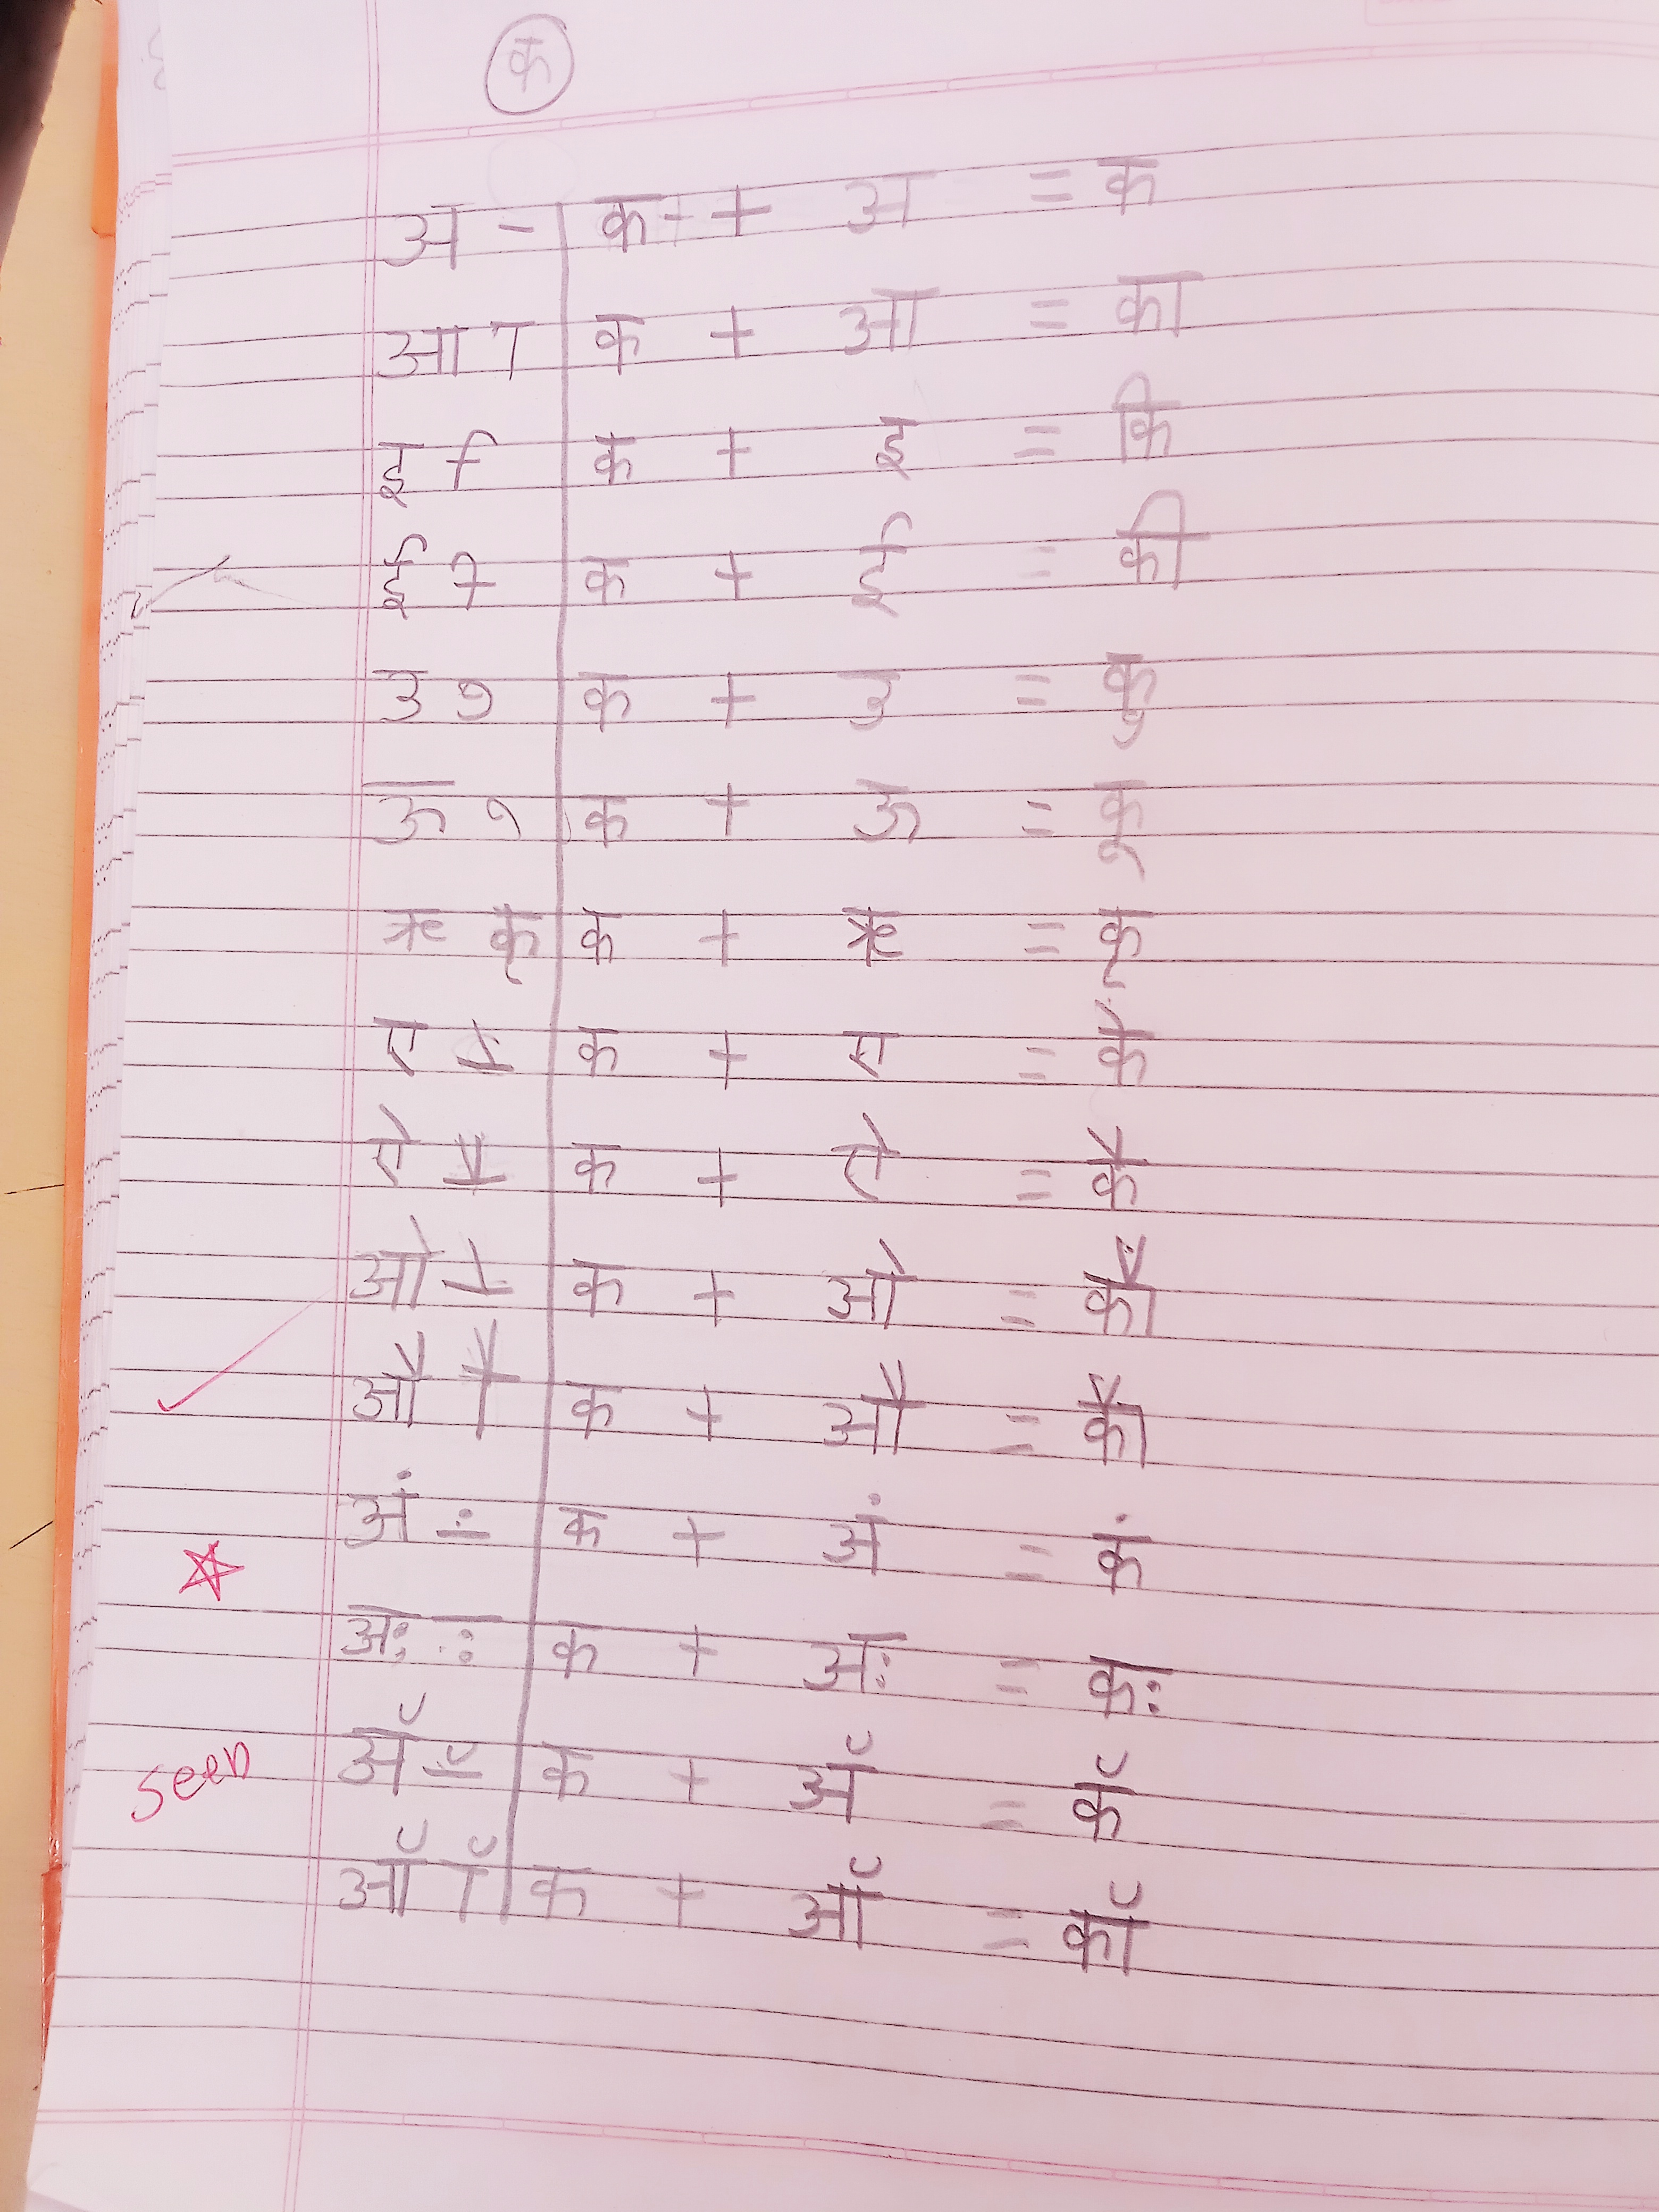 क
अ - क + अ = क
आ ा क + आ = का
इ ि क + इ = कि
ई ी क + ई = की
उ ु क + उ = कु
ऊ ू क + ऊ = कू
ऋ कृ क + ऋ = कृ
ए े क + ए = के
ऐ ै क + ऐ = कै
ओ े क + ओ = कौ
औ ौ क + औ = कौ
अं ं क + अं = कं
अः ः क + अः = कः
अॅ ॅ क + अॅ = कॅ
seen
ऑ ॉ क + ऑ = कॉ